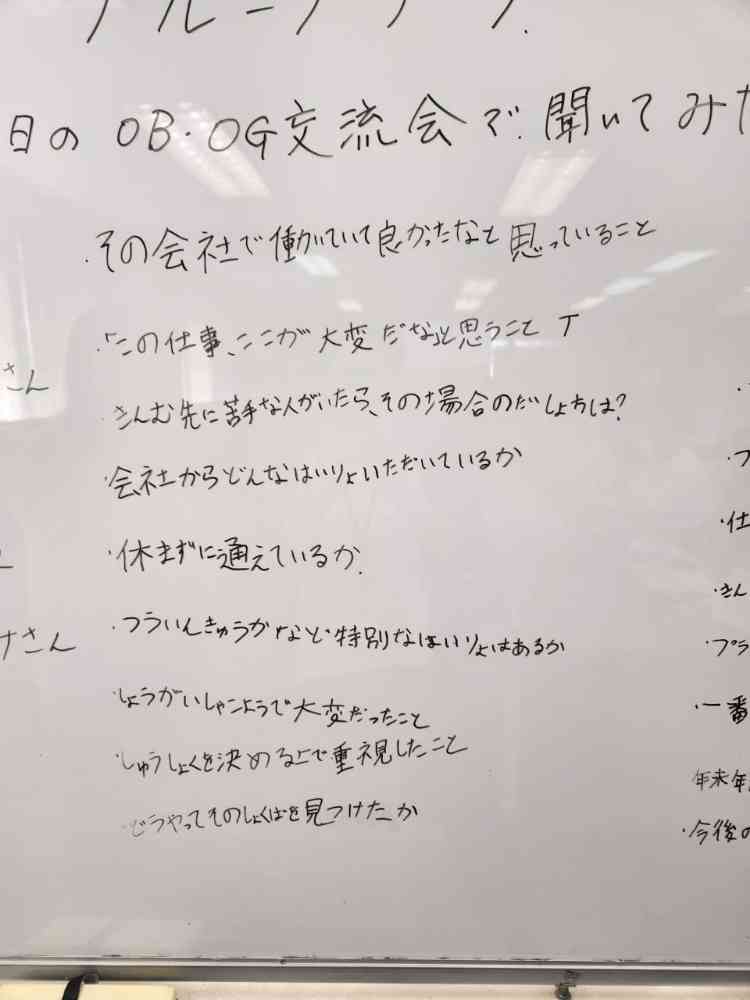 グループワーク
日の OB・OG交流会で聞いてみた
・その会社で働いていて良かったなと思っていること
・「この仕事、ここが大変だな」と思うこと T
さん
・きんむ先に苦手な人がいたら、その場合のたいしょ方は?
・会社からどんなはいりょいただいているか
・休まずに通えているか
・つういんきゅうかなど特別なはいりょはあるか
さん
・しょうがいしゃこようで大変だったこと
・しゅうしょくを決める上で重視したこと
・どうやってそのしょくばを見つけたか
・フ
・仕
・きん
・プラ
・一番
年末年
・今後の